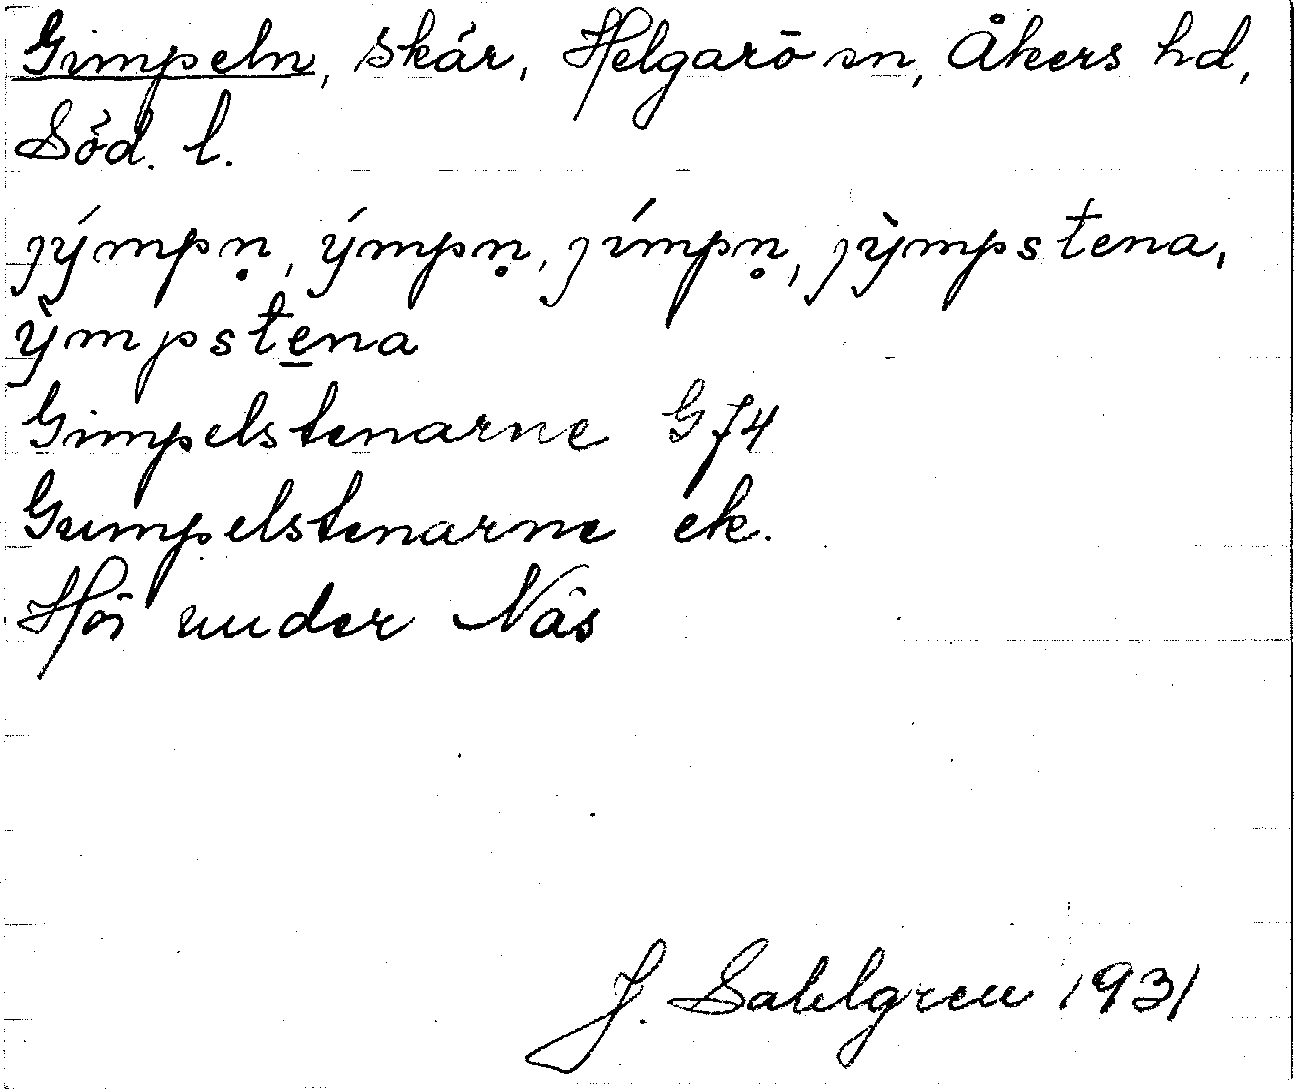 Gimpeln, skär, Helgarö sn, Åkers hd,
Söd. l.
jýmpn̥, ýmpn̥, jímpn̥, jỳmpstena,
ỳmpste̲na
Gimpelstenarne G74
Gumpelstenarne ek.
Hör under Näs
J. Sahlgren 1931